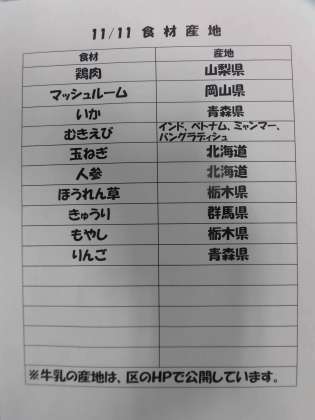 11/11 食材産地
食材 産地
鶏肉 山梨県
マッシュルーム 岡山県
いか 青森県
むきえび インド、ベトナム、ミャンマー、
バングラディシュ
玉ねぎ 北海道
人参 北海道
ほうれん草 栃木県
きゅうり 群馬県
もやし 栃木県
りんご 青森県
※牛乳の産地は、区のHPで公開しています。